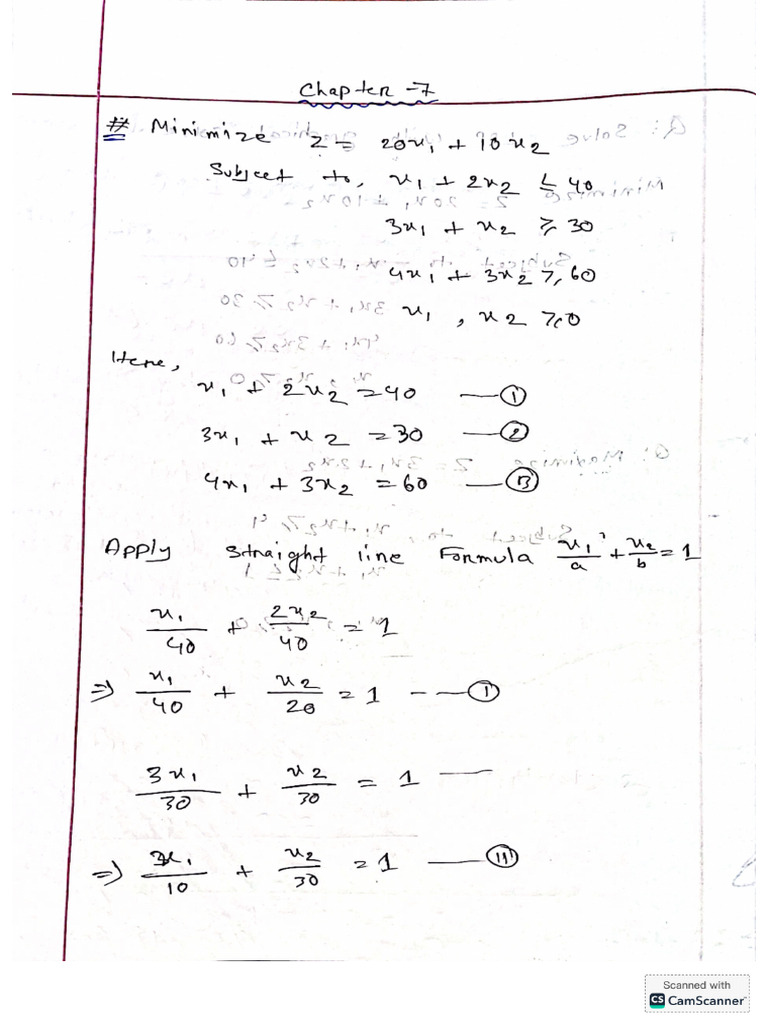 Chapter -7
# Minimize Z = 20x₁ + 10x₂
Subject to, x₁ + 2x₂ ≤ 40
3x₁ + x₂ ≥ 30
4x₁ + 3x₂ ≥ 60
x₁, x₂ ≥ 0
Here,
x₁ + 2x₂ = 40 —①
3x₁ + x₂ = 30 —②
4x₁ + 3x₂ = 60 —
Apply straight line Formula x₁/a + x₂/b = 1
x₁/40 + 2x₂/40 = 1
⇒ x₁/40 + x₂/20 = 1 ---(I)
3x₁/30 + x₂/30 = 1 —
⇒ x₁/10 + x₂/30 = 1 —(III)
Scanned with
CS CamScanner